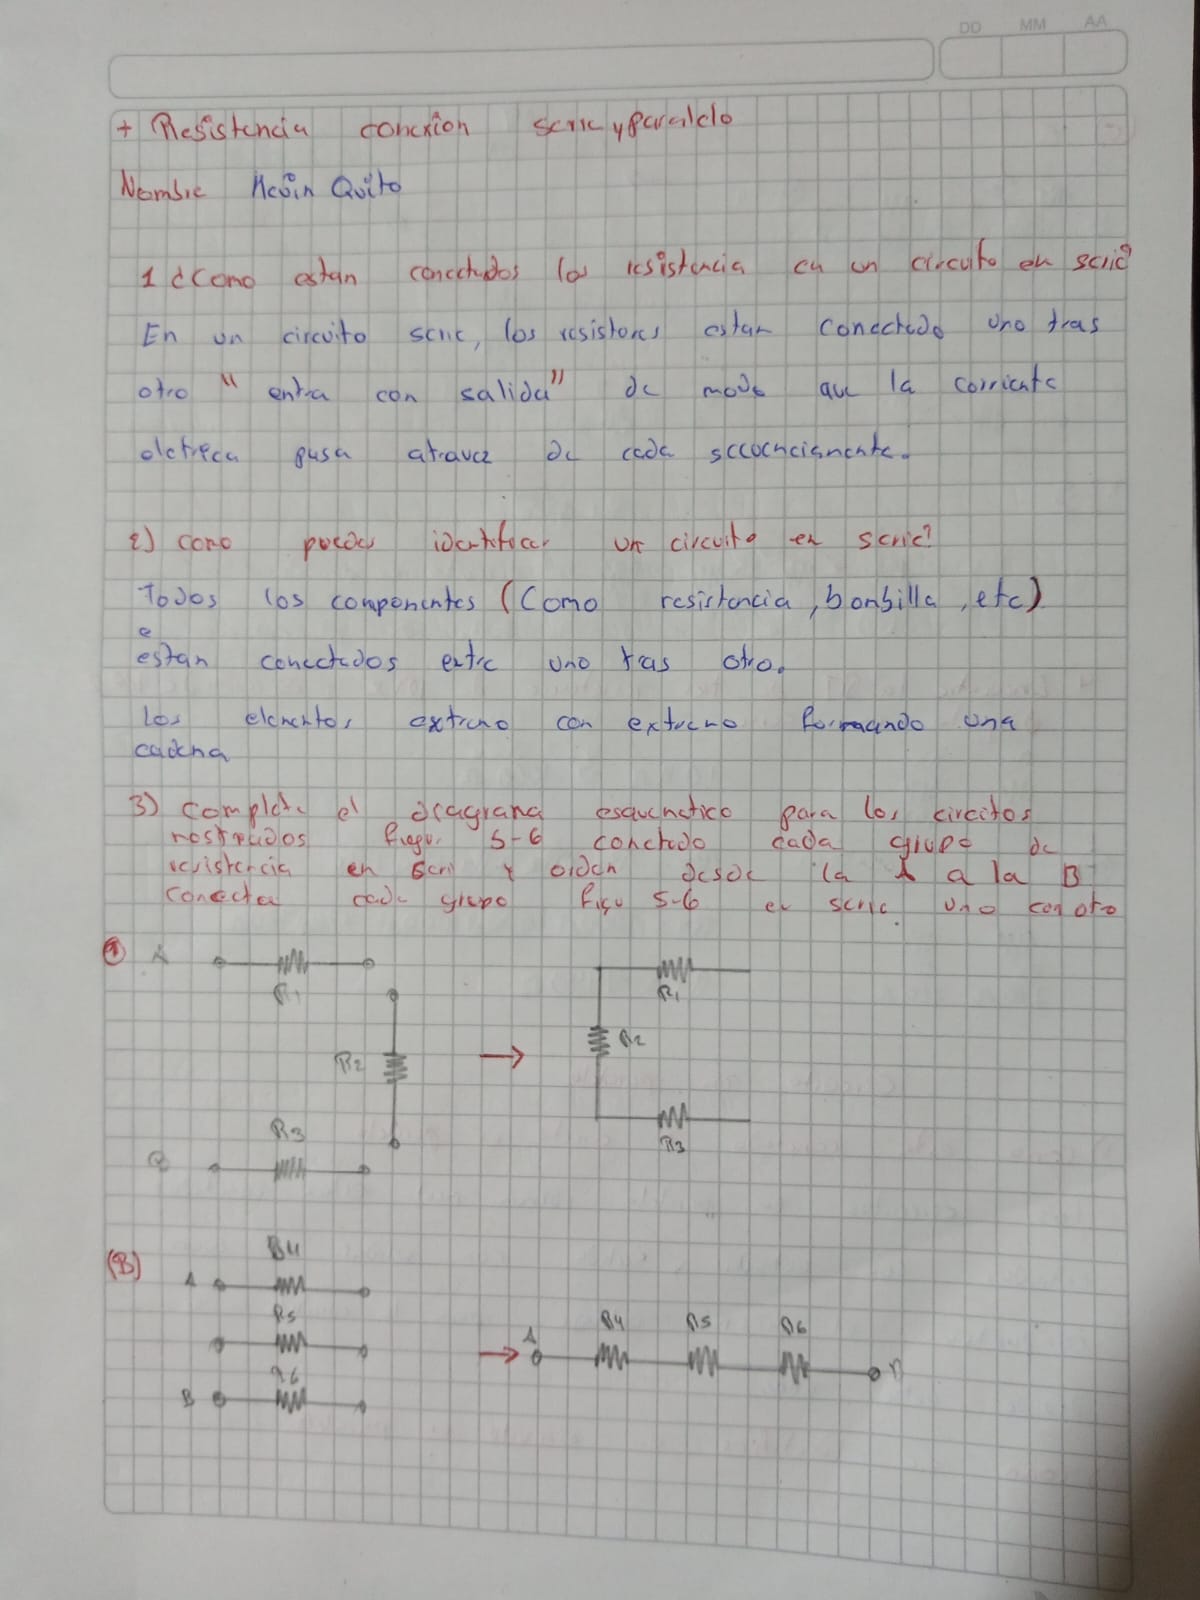 DD MM AA
+ Resistencia conexion serie y paralelo
Nombre Kevin Quito
1 ¿Como estan conectados las resistencia en un circuito en serie?
En un circuito serie, los resistores estan conectado uno tras
otro " entra con salida" de modo que la corriente
eletrica pasa atravez de cada secuencialmente.
2) como puedes identificar un circuito en serie?
Todos los componentes (Como resistencia, bombilla, etc)
e
estan conectados entre uno tras otro.
los elementos extremo con extremo formando una
cadena
3) complete el diagrama esquematico para los circitos
mostrados figur 5-6 conectado cada grupo de
resistencia en seri y orden desde la A a la B
conecta cada grupo figu 5-6 en serie. uno con otro
A
R1
R1
R2
R2
R3
R3
B
(B)
R4
A
R5
R6
B
A
R4 R5 R6
B